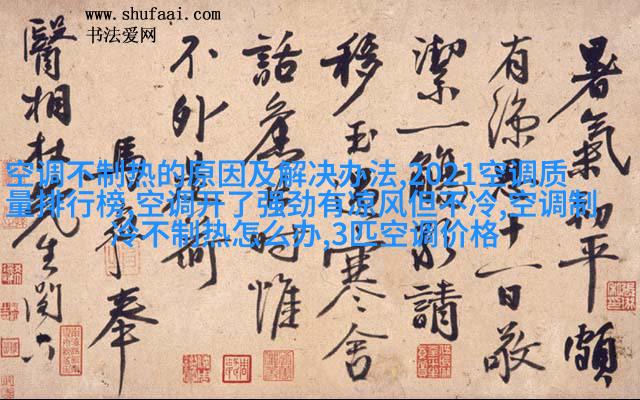 www.shufaai.com
书法爱网
空调不制热的原因及解决办法,2021空调质
量排行榜,空调开了强劲有凉风但不冷,空调制
冷不制热怎么办,3匹空调价格
暑氣初平頗
有涼思十一日敬
潔一觴請
移玉過寒舍
話舊時惟
不外荷
馬奉
醫相杜先生閣下